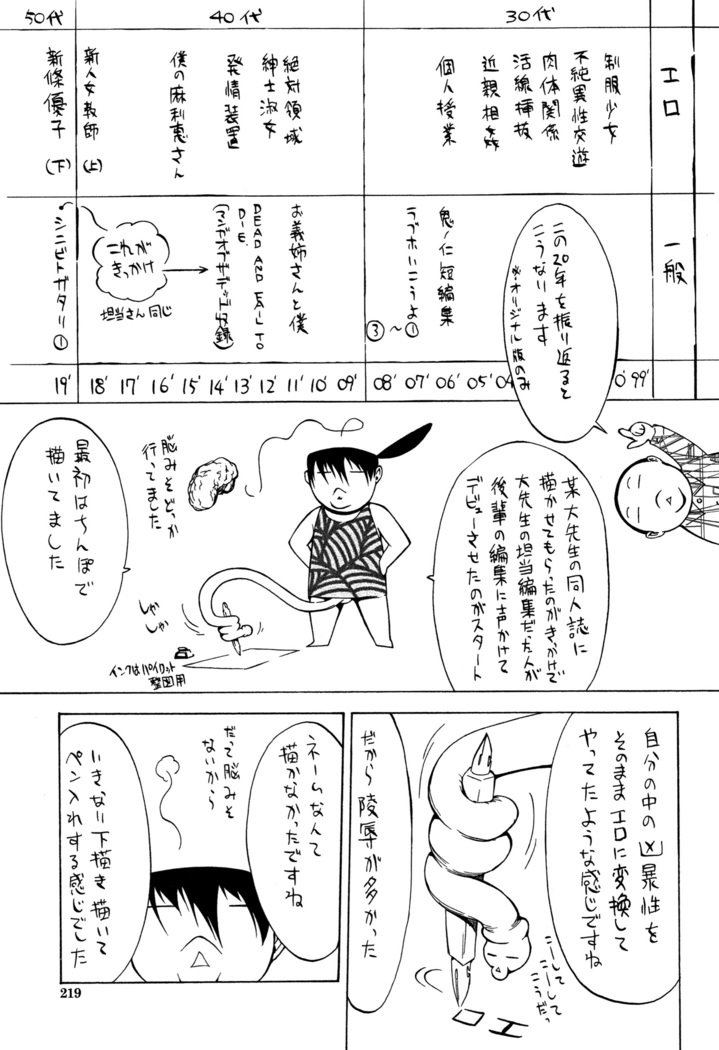 50代
40代
30代
エロ
制服少女
不純異性交遊
肉体関係
活線挿抜
近親相姦
個人授業
絶対領域
紳士淑女
発情装置
僕の麻利恵さん
新人女教師（上）
新條優子（下）
一般
鬼ノ仁短編集
ラブホいこうよ①
〜
③
お義姉さんと僕
DEAD AND FAIL TO
DIE.
（マンガオブザデッド収録）
これが
きっかけ
担当さん同じ
シニビトガタリ①
19'
18'
17'
16'
15'
14'
13'
12'
11'
10'
09'
08'
07'
06'
05'
99'
この20年を振り返ると
こうなります
※オリジナル版のみ
某大先生の同人誌に
描かせてもらったのがきっかけで
大先生の担当編集だった人が
後輩の編集に声かけて
デビューさせたのがスタート
脳みそどっか
行ってました
最初はちんぽで
描いてました
しゃ
しゃ
インクはパイロット
製図用
自分の中の凶暴性を
そのままエロに変換して
やってたような感じですね
だから陵辱が多かった
こーして
こーして
こうだっ
エロ
ネームなんて
描かなかったですね
だって脳みそ
ないから
いきなり下描き描いて
ペン入れする感じでした
219